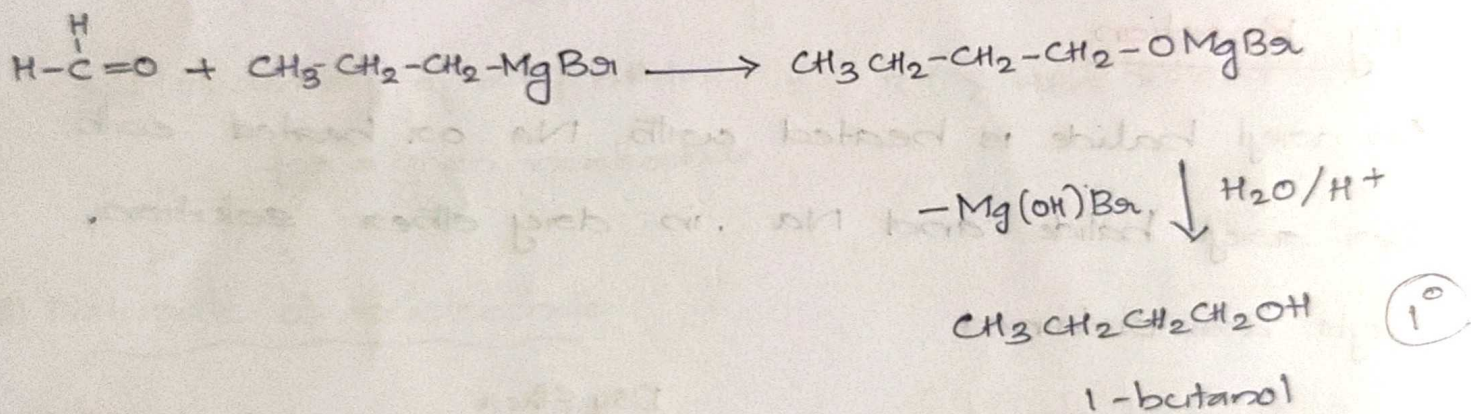 H
H-C=O + CH3-CH2-CH2-MgBr ⟶ CH3CH2-CH2-CH2-OMgBr
-Mg(OH)Br, ↓ H2O/H+
CH3CH2CH2CH2OH 1°
1-butanol